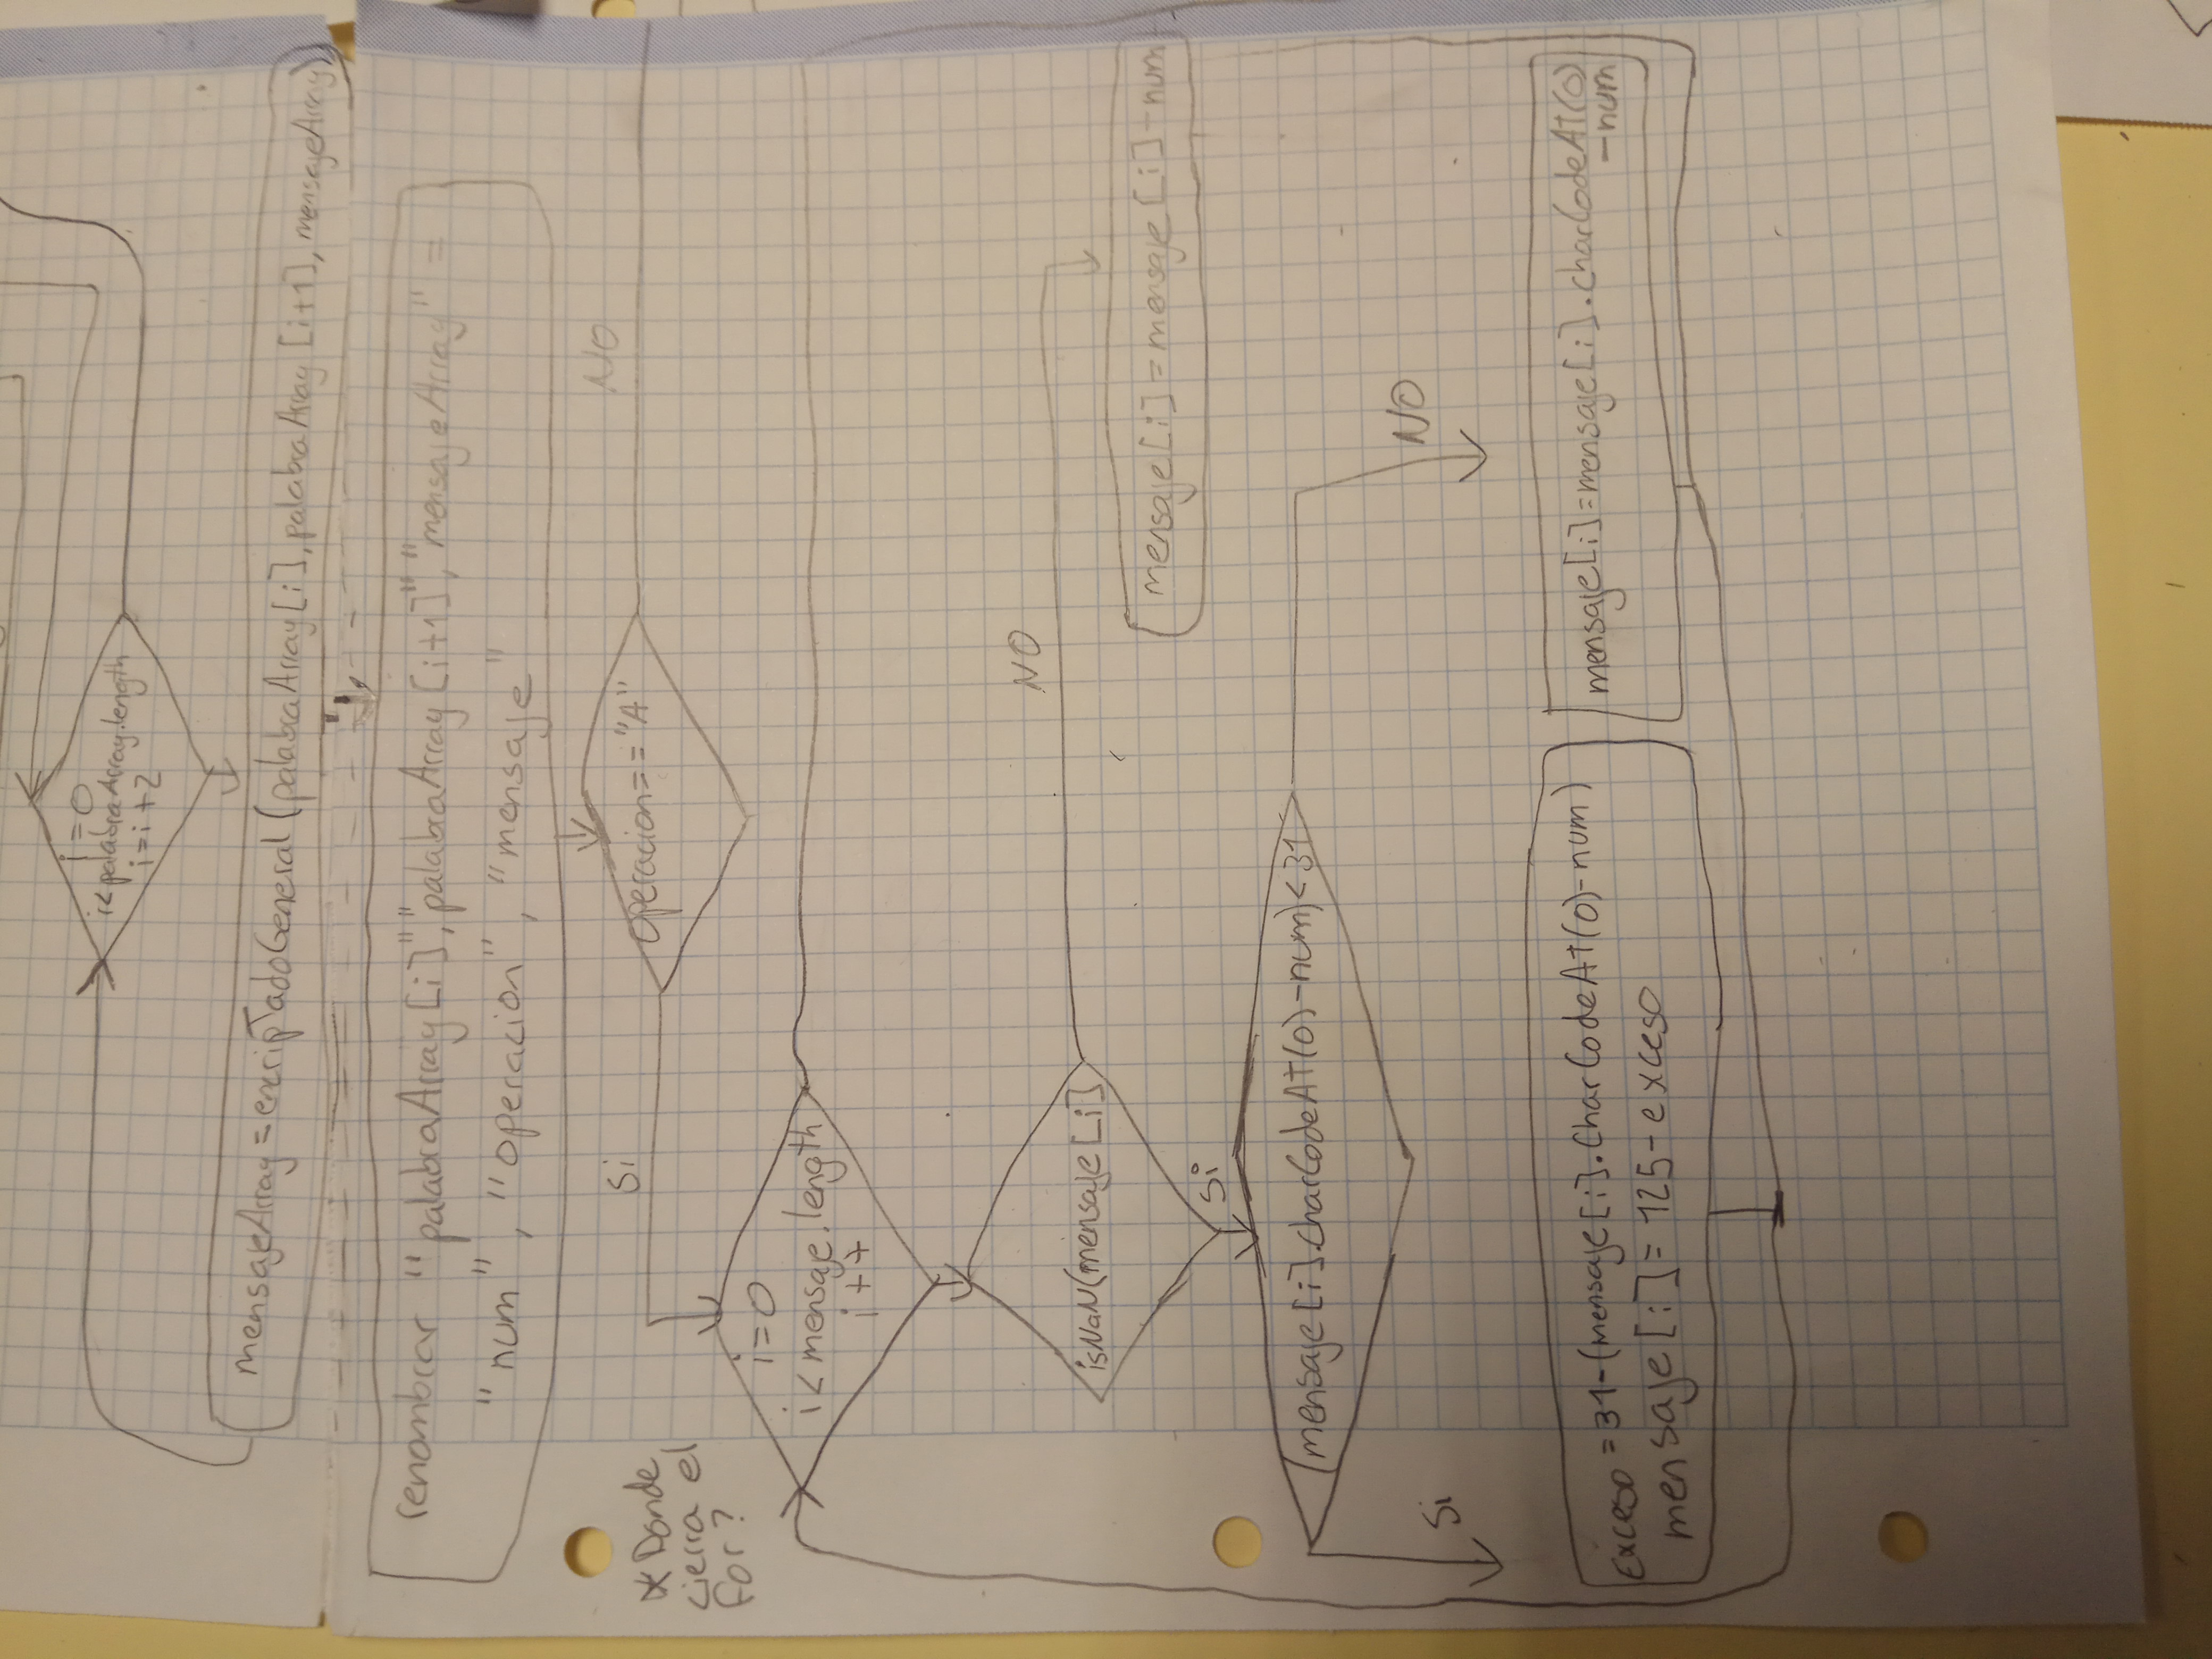 i=0
i<palabraArray.length
i=i+2
mensajeArray=encriptadoGeneral(palabraArray[i],palabraArray[i+1],mensajeArray)
renombrar "palabraArray[i]","palabraArray[i+1]","mensajeArray"=
"num", "operacion", "mensaje"
Operacion=="A"
Si
NO
* Donde
cierra el
for?
i=0
i<mensaje.length
i++
isNaN(mensaje[i]
NO
Si
mensaje[i]=mensaje[i]-num
(mensaje[i].charCodeAt(0)-num)<31
Si
NO
Exceso=31-(mensaje[i].charCodeAt(0)-num)
mensaje[i]=125-exceso
mensaje[i]=mensaje[i].charCodeAt(0)
-num